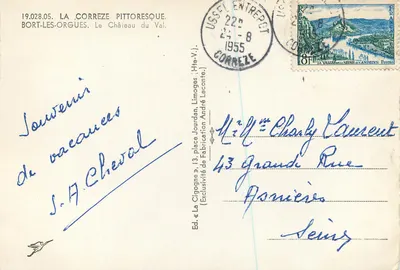 19.028.05. LA CORREZE PITTORESQUE.
BORT-LES-ORGUES. Le Château du Val.
Souvenir
de vacances
J-A. Cheval
Ed. « La Cigogne », 13, place Jourdan, Limoges (Hte-V.)
(Exclusivité de Fabrication André Leconte.)
USSEL ENTREPOT
1955
CORREZE
8F
Mr Mme Charly Laurent
43 Grande Rue
Asnières
Seine